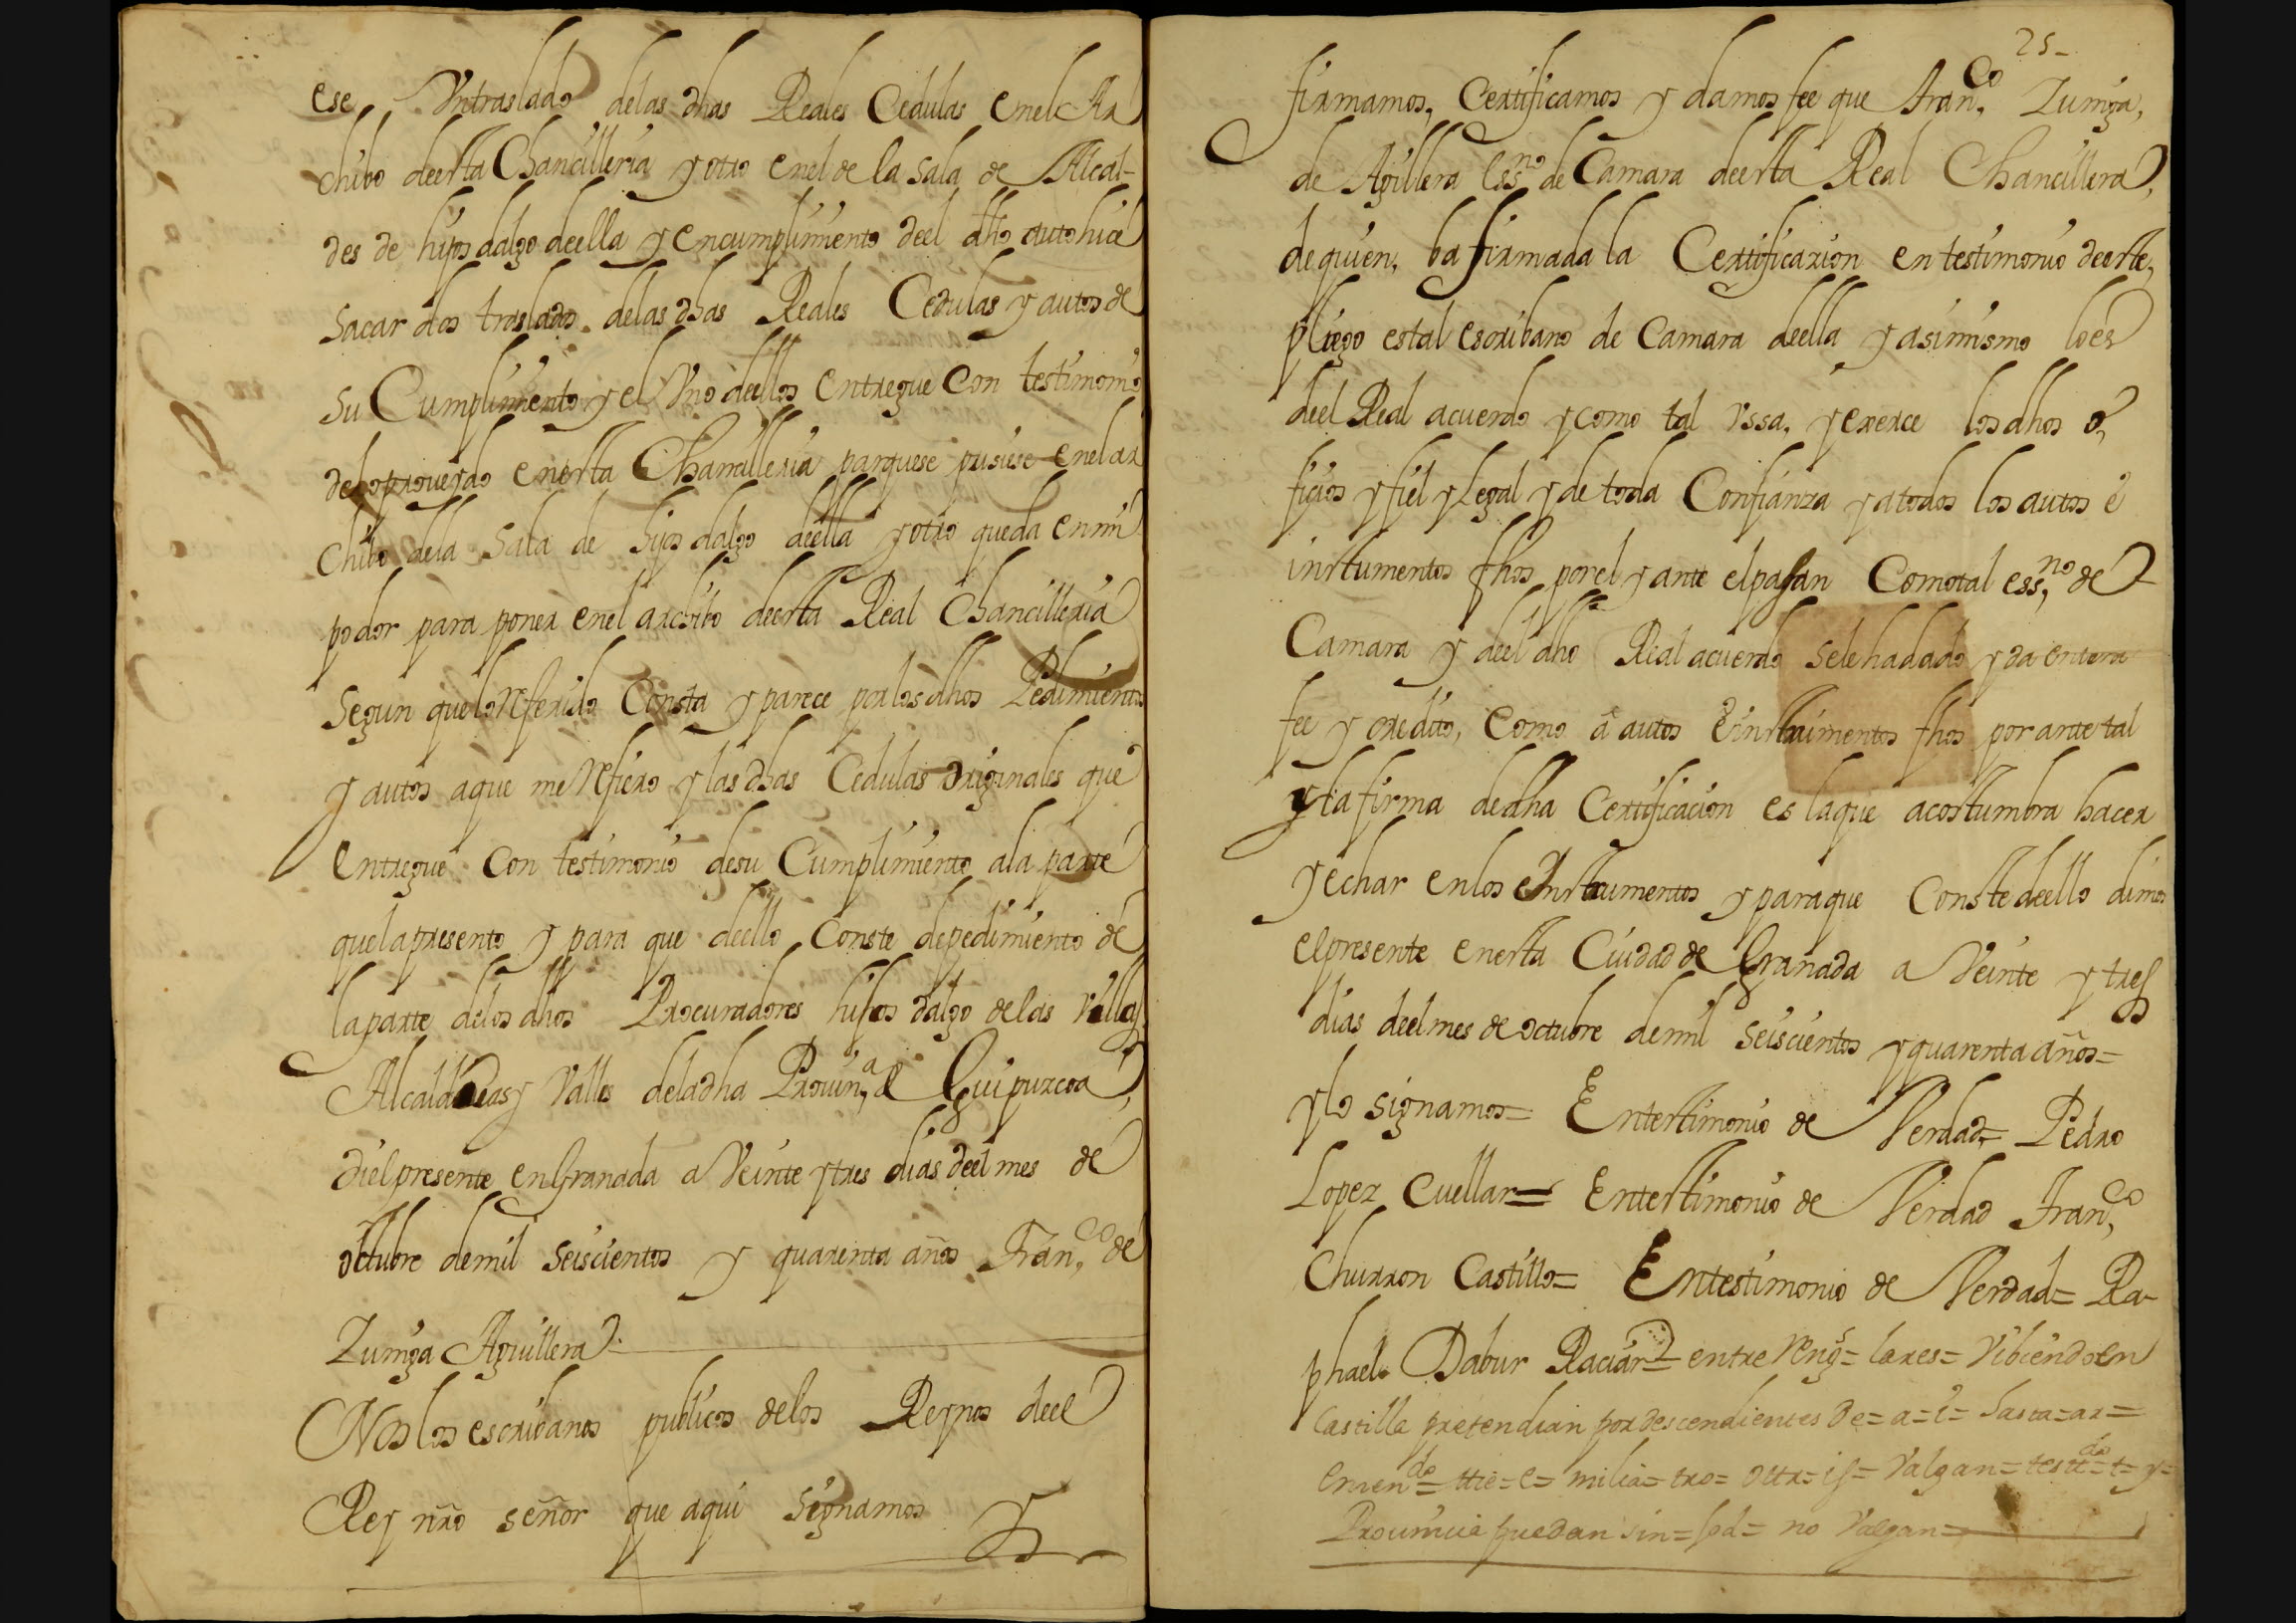 ese Vntraslado delas dhas Reales Cedulas enel Ar
chibo deesta Chancilleria y otro enel de la sala de Alcal-
des de hijos dalgo deella y encumplimiento deel dho auto hice
sacar dos traslados delas dhas Reales Cedulas y autos de
su Cumplimiento y el Vno deellos entregue Con testimonio
delo proueydo enesta Chancilleria parquese pusiese enel ar
chibo dela Sala de hijos dalgo deella y otro queda en mi
podor para poner enel archibo deesta Real Chancilleria
Segun que lo Referido Consta y parece por los dhos Pedimientos
y autos aque me Refiero y las dhas Cedulas originales que
entregue Con testimonio desu Cumplimiento ala parte
quelapresento y para que deello Conste depedimiento de
laparte delos dhos Procuradores hijos dalgo de las Villas
Alcaldias y Valles deladha Prouin,ª de Guipuzcoa,
di elpresente enGranada a Veinte y tres dias deel mes de
octubre demil seiscientos y quarenta años Fran,co de
Zuniga Aguillera
Nos los escribanos publicos delos Reynos deel
Rey nro señor que aqui signamos y
25-
firmamos, Certificamos y damos fee que Fran,co Zuniga,
de Agillera Essno de Camara deesta Real Chancillera,
de quien, ba firmada la Certificazion en testimonio deeste,
pliego es tal escribano de Camara deella y asimismo lo es
deel Real acuerdo y como tal Vssa, y exerce los dhos o,
ficios y fiel y Legal y de toda Confianza y atodos los autos e
instumentos fhos por el y ante el pasan Comotal ess,no de
Camara y deel dho Real acuerdo sele hadado y da entera
fee y credito, Como a autos e instruimentos fhos por ante tal
y la firma dedha Certificacion es laque acostumbra hacer
y echar enlos eInstrumentos y paraque Conste deello dimos
elpresente enesta Ciudad de Granada a Veinte y tres
dias deelmes de octubre demil seiscientos y quarenta años=
y lo signamos= Entestimonio de Verdad= Pedro
Lopez Cuellar= Entestimonio de Verdad Fran,co
Churron Castillo= Entestimonio de Verdad= Ra-
phael Dabur Raciar= entre Rengs= lares= Vibiendo en
Castilla pretendian por descendientes De=a=i= Sasta=ar=
Enmendo= ttie=e= milia= tro= ottr=is= Valgan= testdo= t= y=
Prouincia quedan sin= pd= no Valgan=